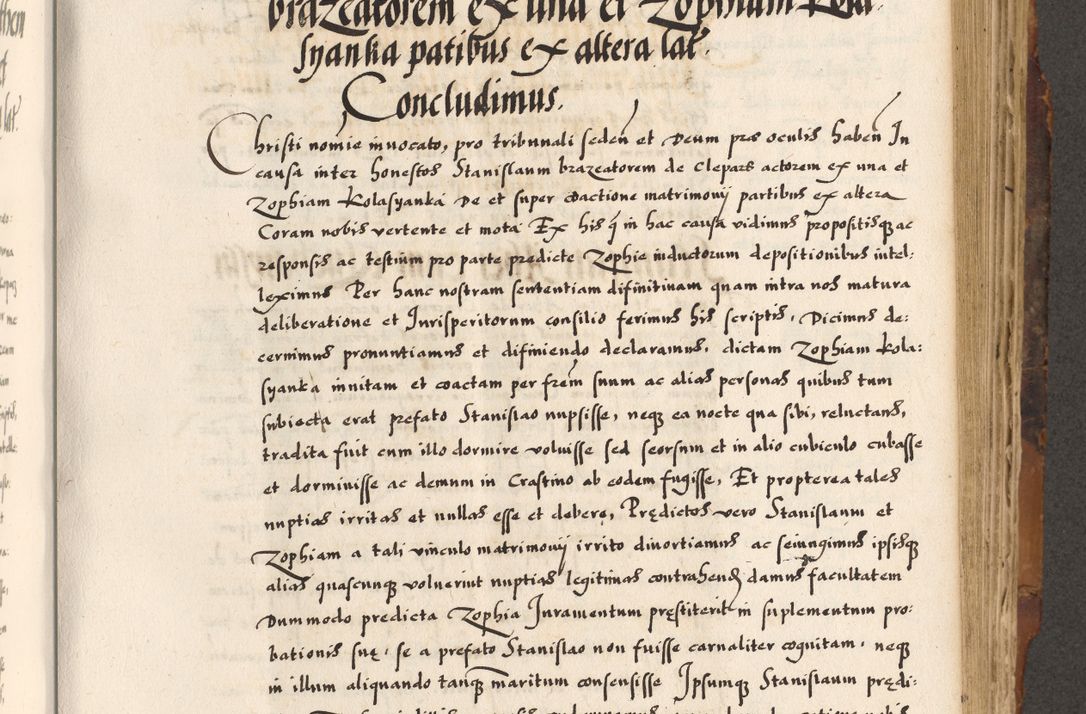 brazeatorem ex una et Zophiam Kola-
syanka patibus ex altera lat.
Concludimus.
Christi nomie invocato, pro tribunali seden et Deum præ oculis haben In
causa inter honestos Stanislaum brazeatorem de Clepars actorem ex una et
Zophiam Kolasyanka De et super coactione matrimonij partibus ex altera
Coram nobis vertente et mota Ex his q in hac causa vidimus propositisque ac
responsis ac testium pro parte predicte Zophie inductorum depositionibus intel:
leximus Per hanc nostram sententiam difinitivam quam intra nos matura
deliberatione et Jurisperitorum consilio ferimus his scriptis, Dicimus de:
cernimus pronuntiamus et difiniendo declaramus, dictam Zophiam Kola:
syanka invitam et coactam per frem suum ac alias personas quibus tum
subiecta erat prefato Stanislao nupsisse, neque ea nocte qua sibi, reluctans,
tradita fuit cum illo dormire voluisse sed seorsum et in alio cubiculo cubasse
et dormivisse ac demum in Crastino ab eodem fugisse, Et propterea tales
nuptias irritas et nullas esse et debere, Prędictos vero Stanislaum et
Zophiam a tali vinculo matrimonij irrito divortiamus ac seiungimus ipsisque
alias quascunque voluerint nuptias legitimas contrahend damus facultatem
Dummodo predicta Zophia Juramentum pręstiterit in suplementum pro:
bationis suę, se a prefato Stanislao non fuisse carnaliter cognitam, neque
in illum aliquando tanque maritum consensisse Ipsumque Stanislaum prędi: